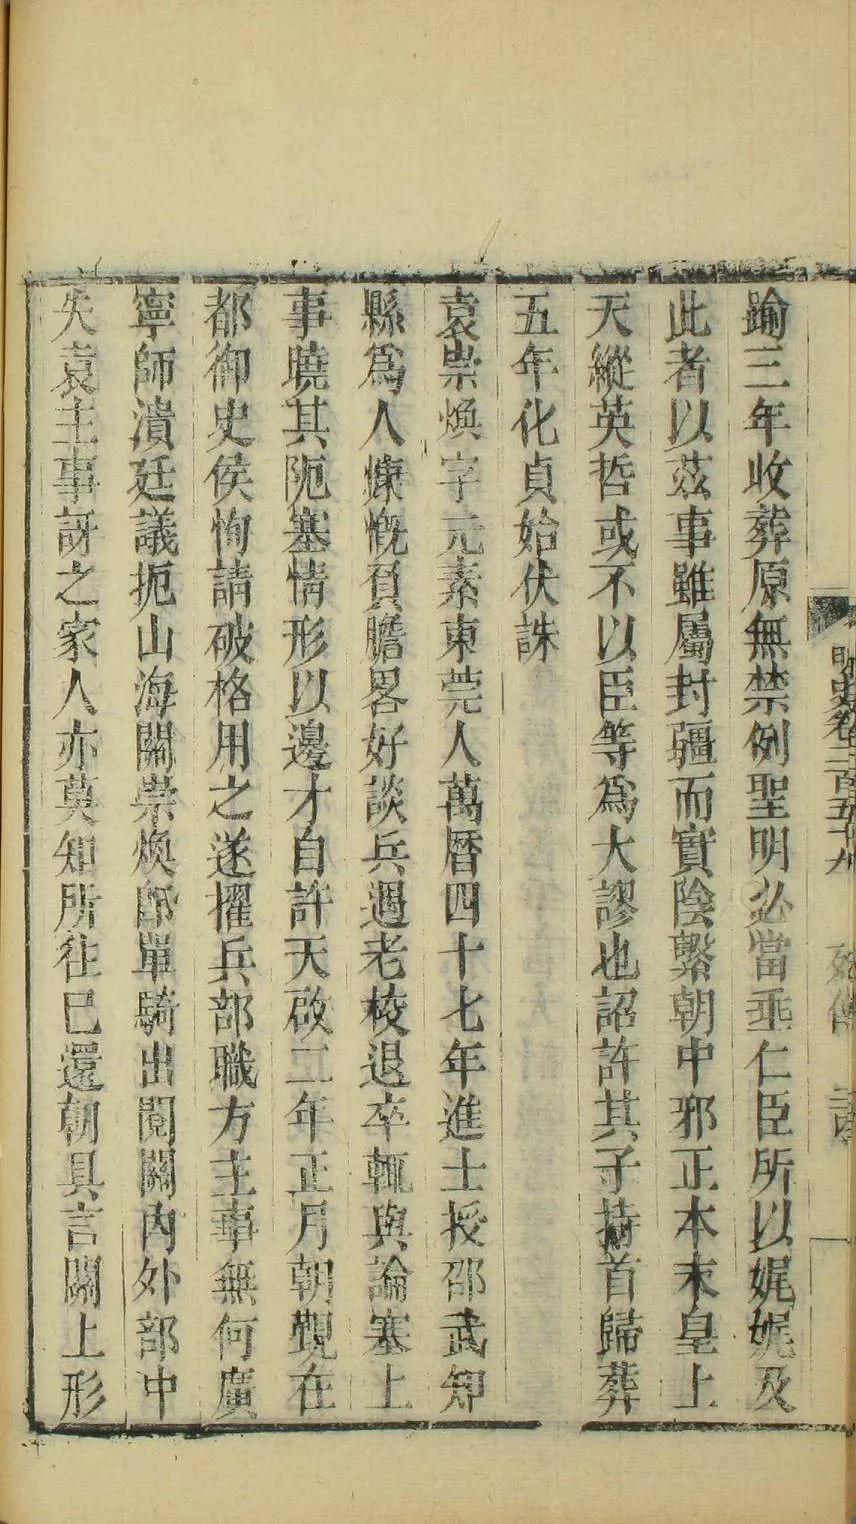 明史卷二百五十九
踰三年收葬原無禁例聖明必當垂仁臣所以娓娓及
此者以茲事雖屬封疆而實陰繫朝中邪正本末皇上
天縱英哲或不以臣等為大謬也詔許其子持首歸葬
五年化貞始伏誅
袁崇煥字元素東莞人萬曆四十七年進士授邵武知
縣為人慷慨負膽畧好談兵遇老校退卒輒與論塞上
事曉其阨塞情形以邊才自許天啟二年正月朝覲在
都御史侯恂請破格用之遂擢兵部職方主事無何廣
寧師潰廷議扼山海關崇煥即單騎出閱關內外部中
失袁主事訝之家人亦莫知所往已還朝具言關上形